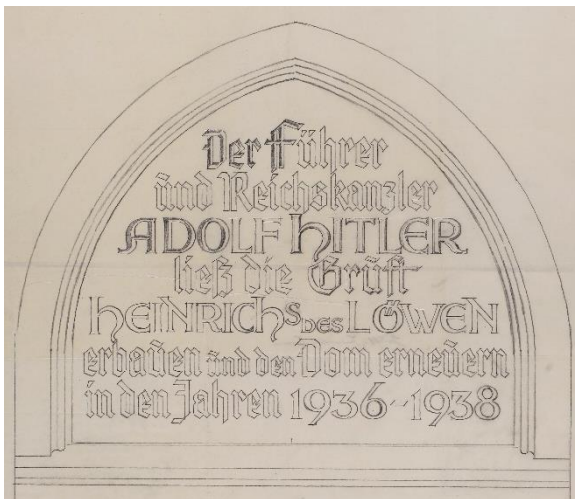 Der Führer
und Reichskanzler
ADOLF HITLER
ließ die Gruft
HEINRICHS DES LÖWEN
erbauen und den Dom erneuern
in den Jahren 1936-1938